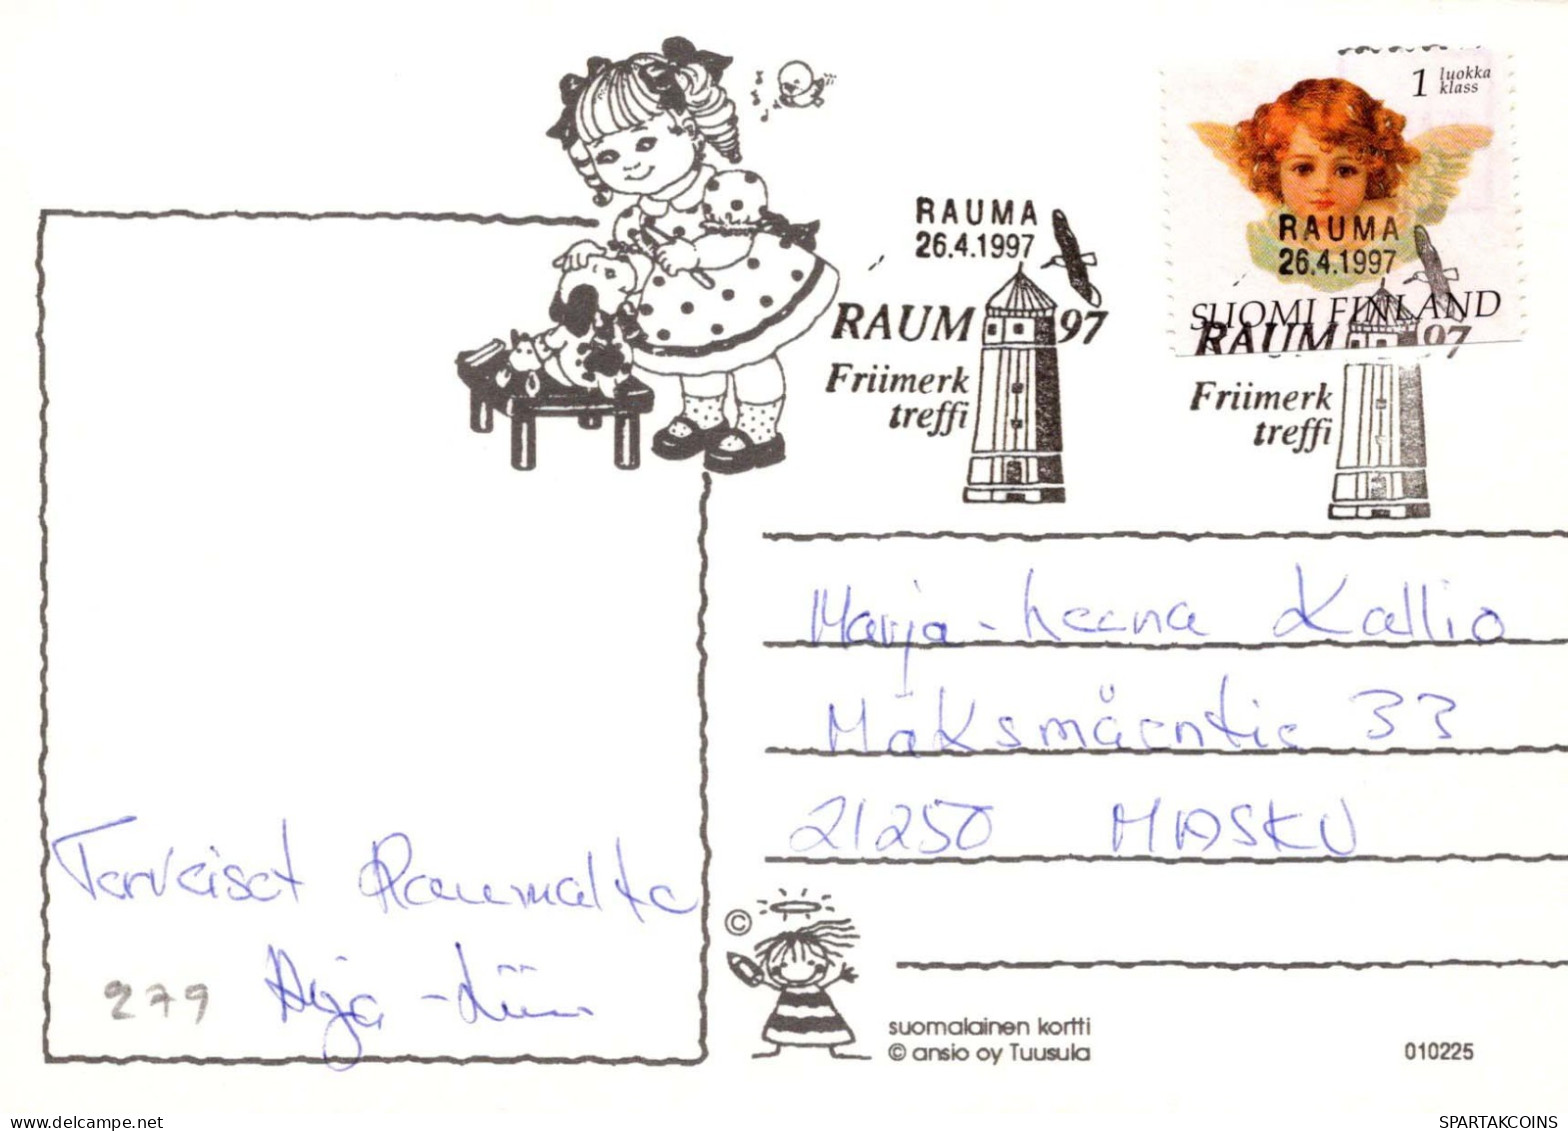 1 luokka
klass
RAUMA
26.4.1997
RAUM 97
Friimerk
treffi
RAUMA
26.4.1997
SUOMI FINLAND
RAUM 97
Friimerk
treffi
Marja-Leena Kallio
33
21250 MASKU
Terveiset Raumalta
Arja-
279
©
suomalainen kortti
© ansio oy Tuusula
010225
www.delcampe.net
SPARTAKCOINS